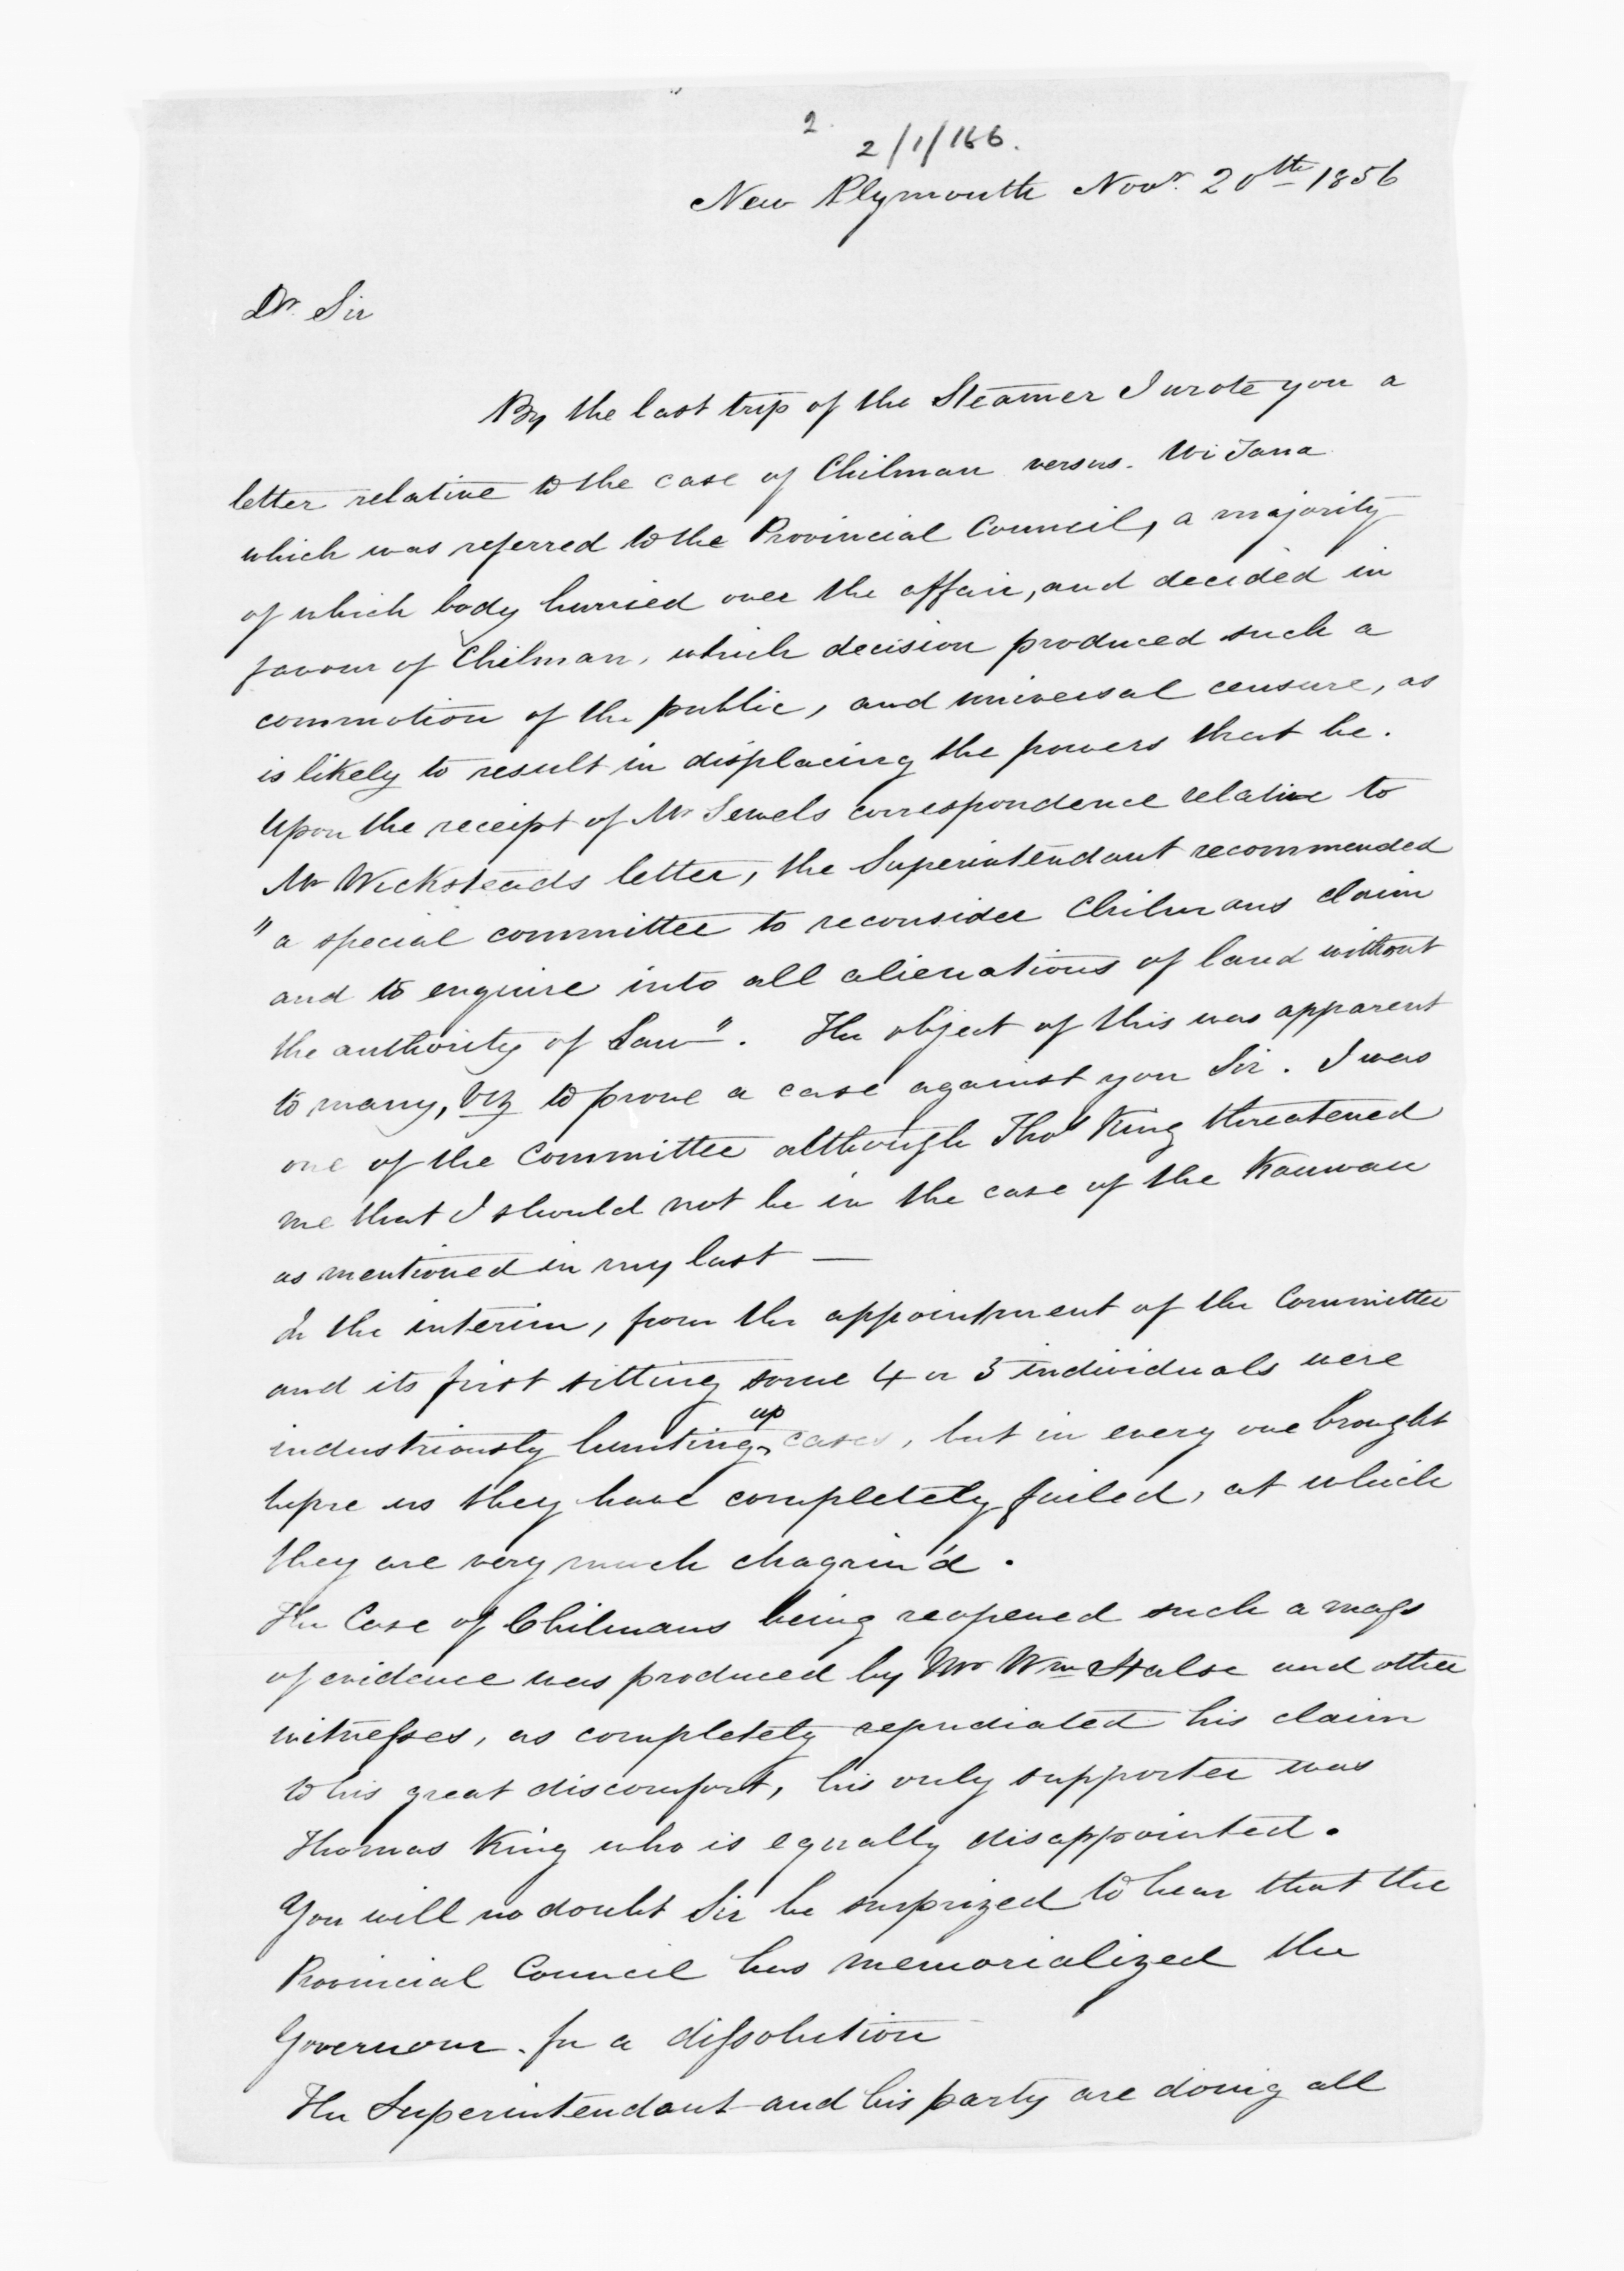 2
2/1/166.
New Plymouth Novr. 20th 1856
Dr. Sir
By the last trip of the Steamer I wrote you a
letter relative to the case of Chilman versus. Wi Tana
which was referred to the Provincial Council, a majority
of which body hurried over the affair, and decided in
favour of Chilman, which decision produced such a
commotion of the public, and universal censure, as
is likely to result in displacing the powers that be.
Upon the receipt of Mr Sewels correspondence relative to
Mr Wicksteads letter, the Superintendant recommended
"a special committee to reconsider Chilmans claim
and to enquire into all alienations of land without
the authority of Law". The object of this was apparent
to many, viz to prove a case against you Sir. I was
one of the Committee although Thos King threatened
me that I should not be in the case of the
as mentioned in my last —
In the interim, from the appointment of the Committee
and its first sitting some 4 or 5 individuals were
industriously hunting up cases, but in every one brought
before us they have completely failed, at which
they are very much chagrin'd.
The Case of Chilmans being reopened such a mass
of evidence was produced by Mr Wm Halse and other
witnesses, as completely repudiated his claim
to his great discomfort, his only supporter was
Thomas King who is equally disappointed.
You will no doubt Sir be surprized to hear that the
Provincial Council has memorialized the
Governour. for a dissolution
The Superintendant and his party are doing all